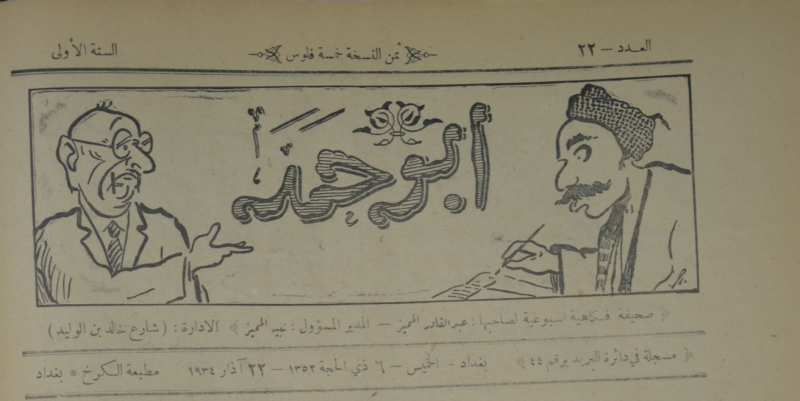 العدد – ٢٢ ثمن النسخة خمسة فلوس السنة الأولى
أبو حمد
صحيفة فكاهية اسبوعية لصاحبها : عبد القادر المميز – المدير المسؤول : نهير المميز الادارة : ( شارع خالد بن الوليد )
مسجلة في دائرة البريد برقم ٤٤ بغداد – الخميس – ٦ ذي الحجة ١٣٥٢ – ٢٢ آذار ١٩٣٤ مطبعة الكرخ * بغداد